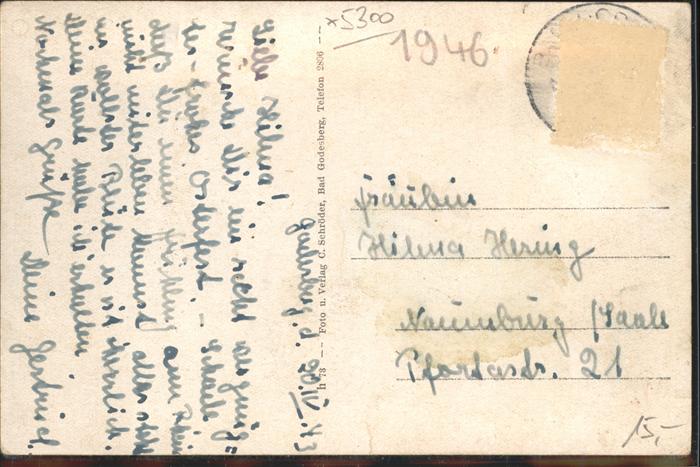 x5300
1946
Godesberg, d. 20.IV.43
Liebe Hilma!
wünsche Dir ein recht vergnüg=
tes, frohes Osterfest. - Schade
daß Du einen am Rhein
nicht miterleben kannst, alles steht
in Blüte u. es ist herrlich.
Deine Karte habe ich erhalten.
Grüße Deine Gertrud.
In 73 -- Foto u. Verlag C. Schröder, Bad Godesberg, Telefon 2886 --
Fräulein
Hilma Hering
Naumburg /Saale
Pfortastr. 21
15,-